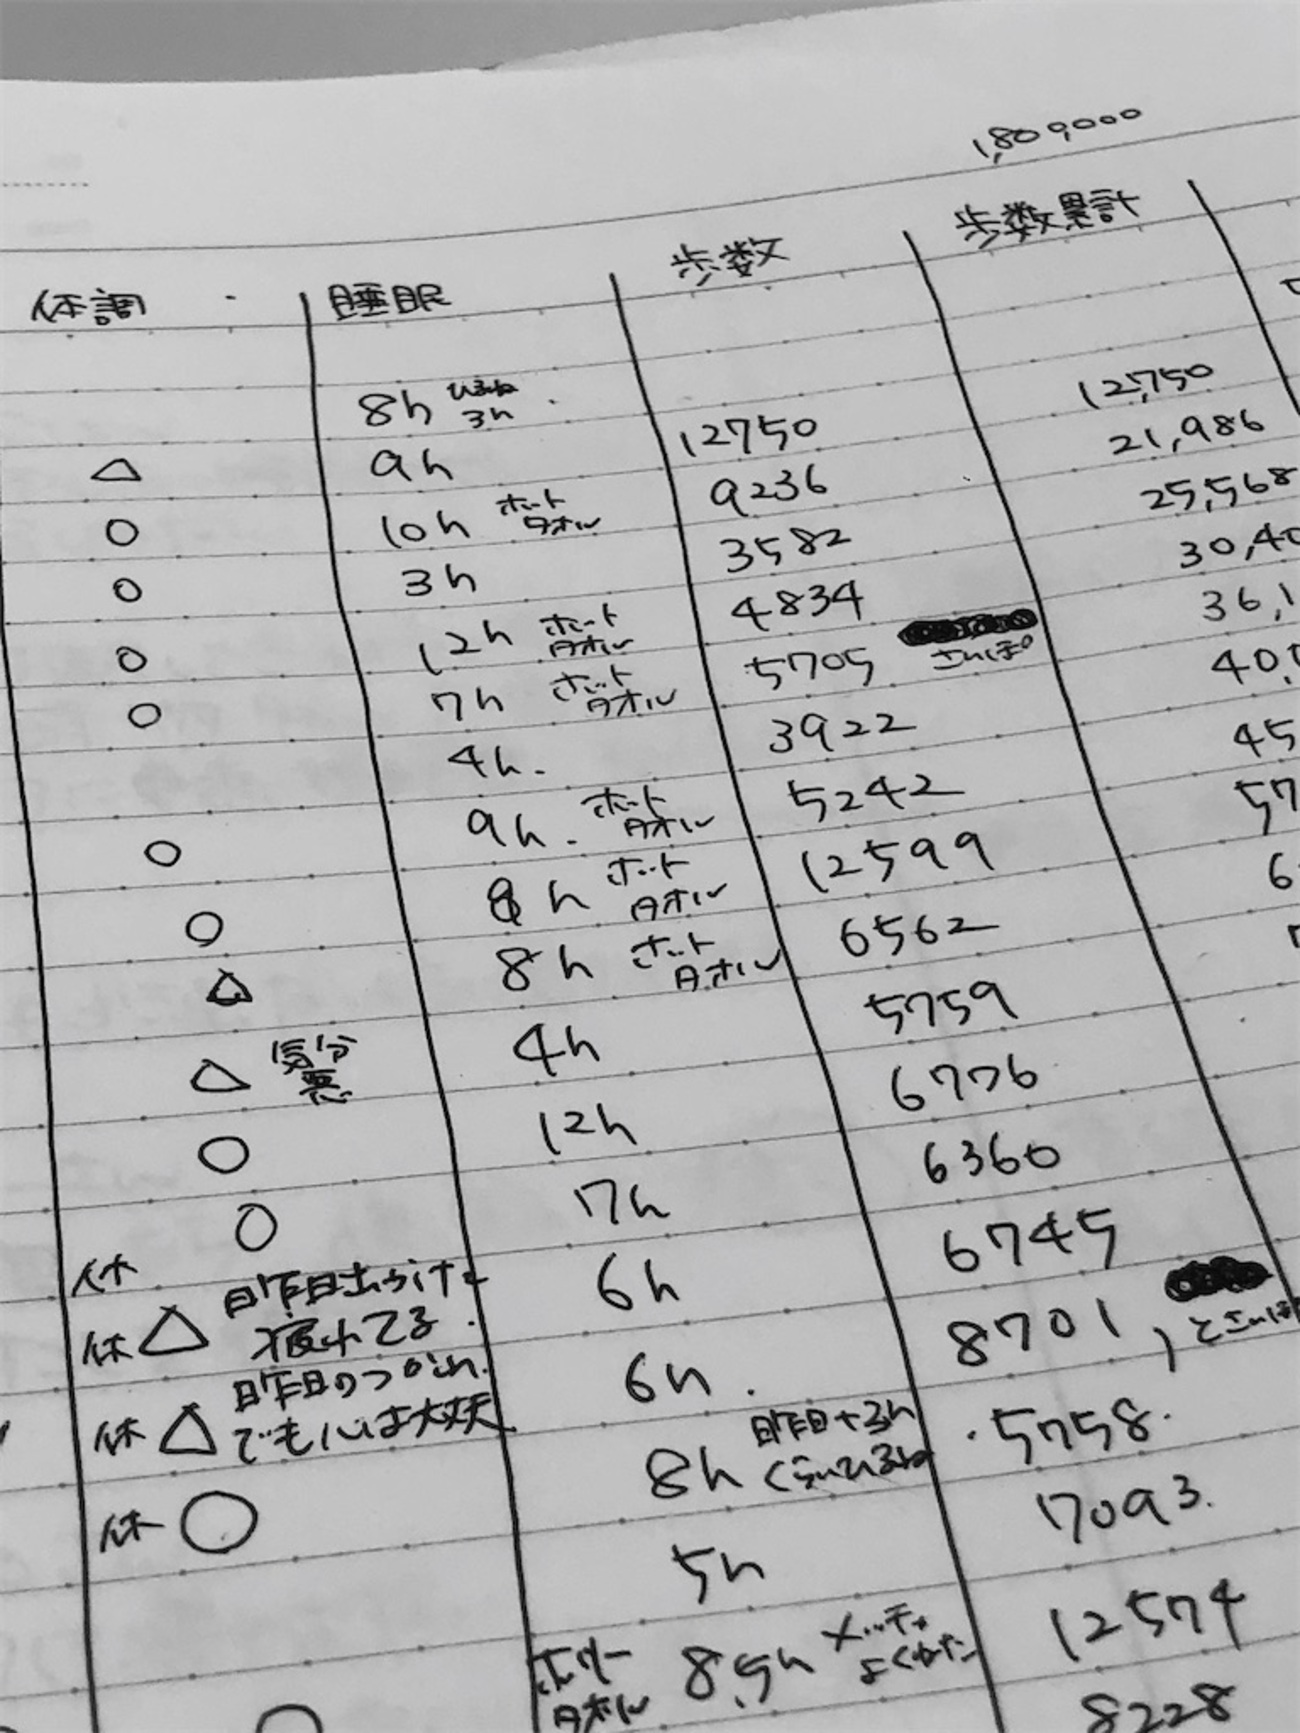 1,809000
体調 睡眠 歩数 歩数累計
8h ひるね 3h 12750 12,750
△ 9h 9236 21,986
○ 10h ホットタオル 3582 25,568
○ 3h 4834 30,40
○ 12h ホットタオル 5705 さんぽ 36,1
○ 7h ホットタオル 3922 40,
4h. 5242 45
○ 9h. ホットタオル 12599 57
○ 8h ホットタオル 6562 6
△ 8h ホットタオル 5759
△ 気分悪 4h 6776
○ 12h 6360
○ 7h 6745
休 6h 8701, とさんぽ
休 △ 昨日出かけた疲れてる. 6h. 5758.
休 △ 昨日のつかれ.でも心は大丈夫 8h 昨日+3hくらいひるね 7093.
休 ○ 5h 12574
ホットタオル 8.5h メッチャよくねた 8228